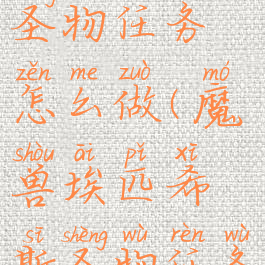 圣物任务
zěn me zuò mó
怎么做(魔
shòu āi pǐ xī
兽埃匹希
sī shèng wù rèn wù
斯圣物任务